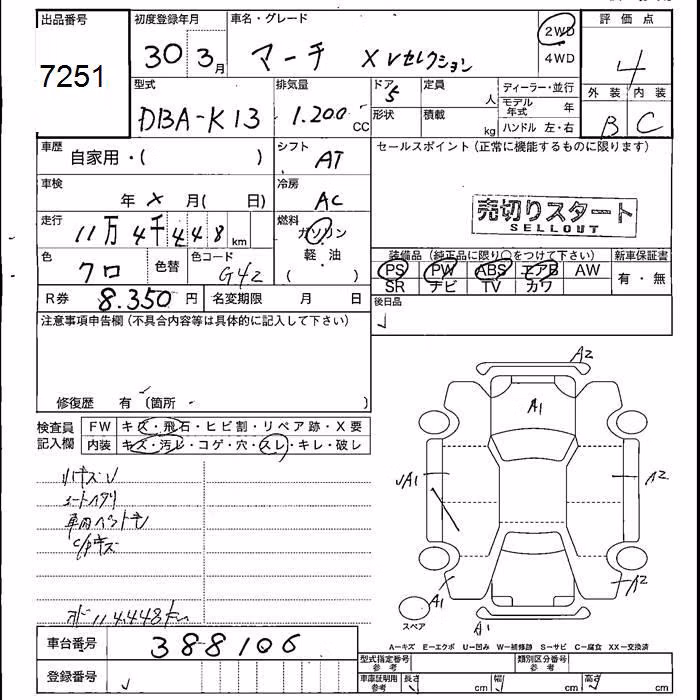 出品番号 初度登録年月 車名・グレード 評価点
7251 30 3月 マーチ X Vセレクション 2WD 4WD 4
型式 排気量 ドア 定員 ディーラー・並行 外装 内装
DBA-K13 1.200 CC 5 人 モデル年式 年 B C
形状 積載 kg ハンドル 左・右
車歴 シフト セールスポイント (正常に機能するものに限ります)
自家用・( ) AT
車検 冷房
年 X 月( 日) AC 売切りスタート
SELLOUT
走行 燃料
11万 4千 4 4 8 km ガソリン
軽・油
( )
装備品 (純正品に限り○をつけて下さい) 新車保証書
色 色替 色コード
クロ G42
PS PW ABS エアB AW 有・無
SR ナビ TV カワ
R券 8.350 円 名変期限 月 日
後日品
注意事項申告欄 (不具合内容等は具体的に記入して下さい)
修復歴 有 (箇所 )
A2
A1
検査員記入欄 FW キズ・飛石・ヒビ割・リペア跡・X要
内装 キズ・汚レ・コゲ・穴・スレ・キレ・破レ
A1 A2
小キズ
シートヘタリ
C/Pキズ
A1 A2
スペア A1
11,4,448km
A−キズ E−エクボ U−凹み W−補修跡 S−サビ C−腐食 XX−交換済
車台番号 388106
型式指定番号 参考 類別区分番号 参考
登録番号
車庫証明用 参考 長さ cm 幅 cm 高さ cm